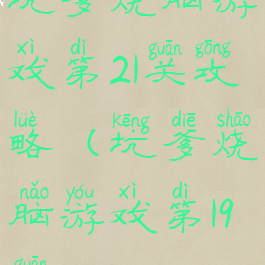 坑爹烧脑游
xì dì guān gōng
戏第21关攻
lüè kēng diē shāo
略(坑爹烧
nǎo yóu xì dì
脑游戏第19
guān